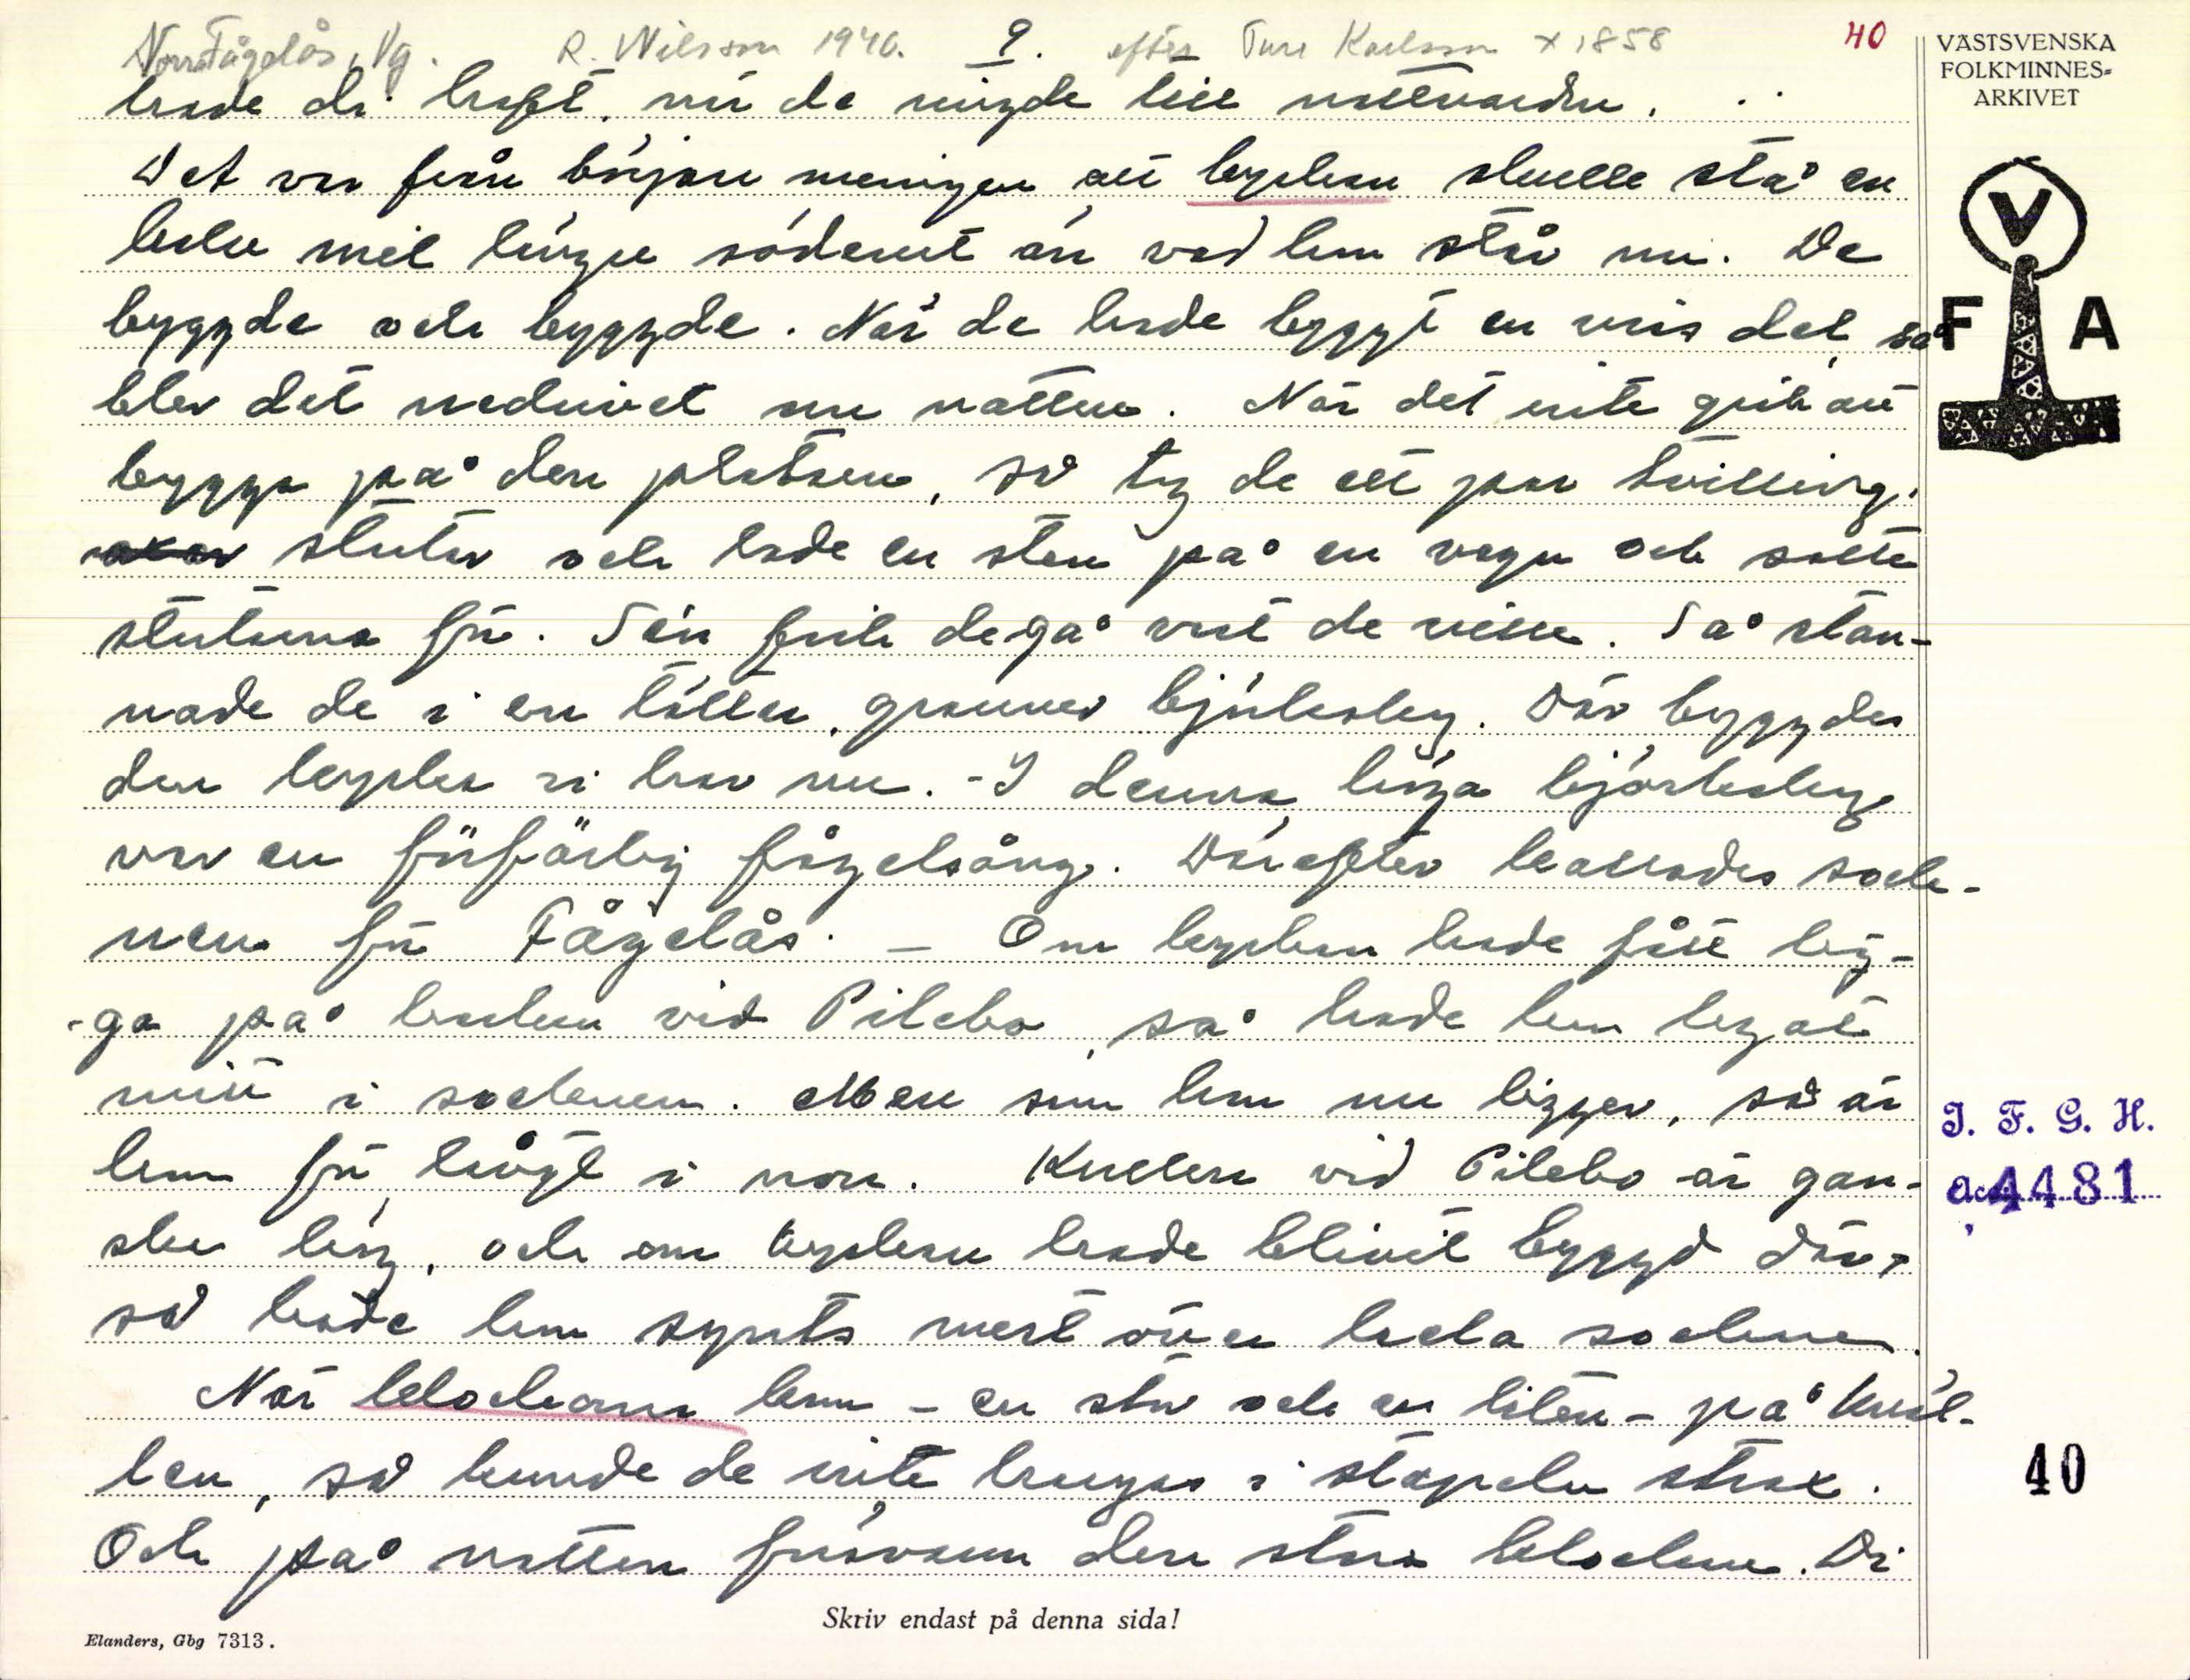 Norra Fågelås, Vg. R. Nilsson 1940. 9. efter Ture Karlsson f 1858 40
hade di haft, när de ringde till nattvarden.
Det var från början meningen att kyrkan skulle stå en
halv mil längre söderut än vad hon står nu. De
byggde och byggde. När de hade byggt en viss del, så
blev det nedrivet om natten. När det inte gick att
bygga på den platsen, så tog de ett par tvilling-
oxar stutar och lade en sten på en vagn och satte
stutarna för. Sen fick de gå vart de ville. Så stan-
nade de i en tätten granner björkskog. Där byggdes
den kyrka vi har nu. - I denna höga björkskog
var en förfärlig fågelsång. Därefter kallades sock-
nen för Fågelås. - Om kyrkan hade fått lig-
-ga på backen vid Pilebo, så hade hon legat
mitt i socknen. Men som hon nu ligger, så är
hon för långt i norr. Kullen vid Pilebo är gan-
ska hög, och om kyrkan hade blivit byggd där,
så hade hon synts mest över hela socknen.
När klockorna kom - en stor och en liten - på kväl-
len, så kunde de inte hängas i stapeln strax.
Och på natten försvann den stora klockan. Di
VÄSTSVENSKA
FOLKMINNES-
ARKIVET
V
F A
I. F. G. H.
Acc. 4481
40
Skriv endast på denna sida!
Elanders, Gbg 7313.